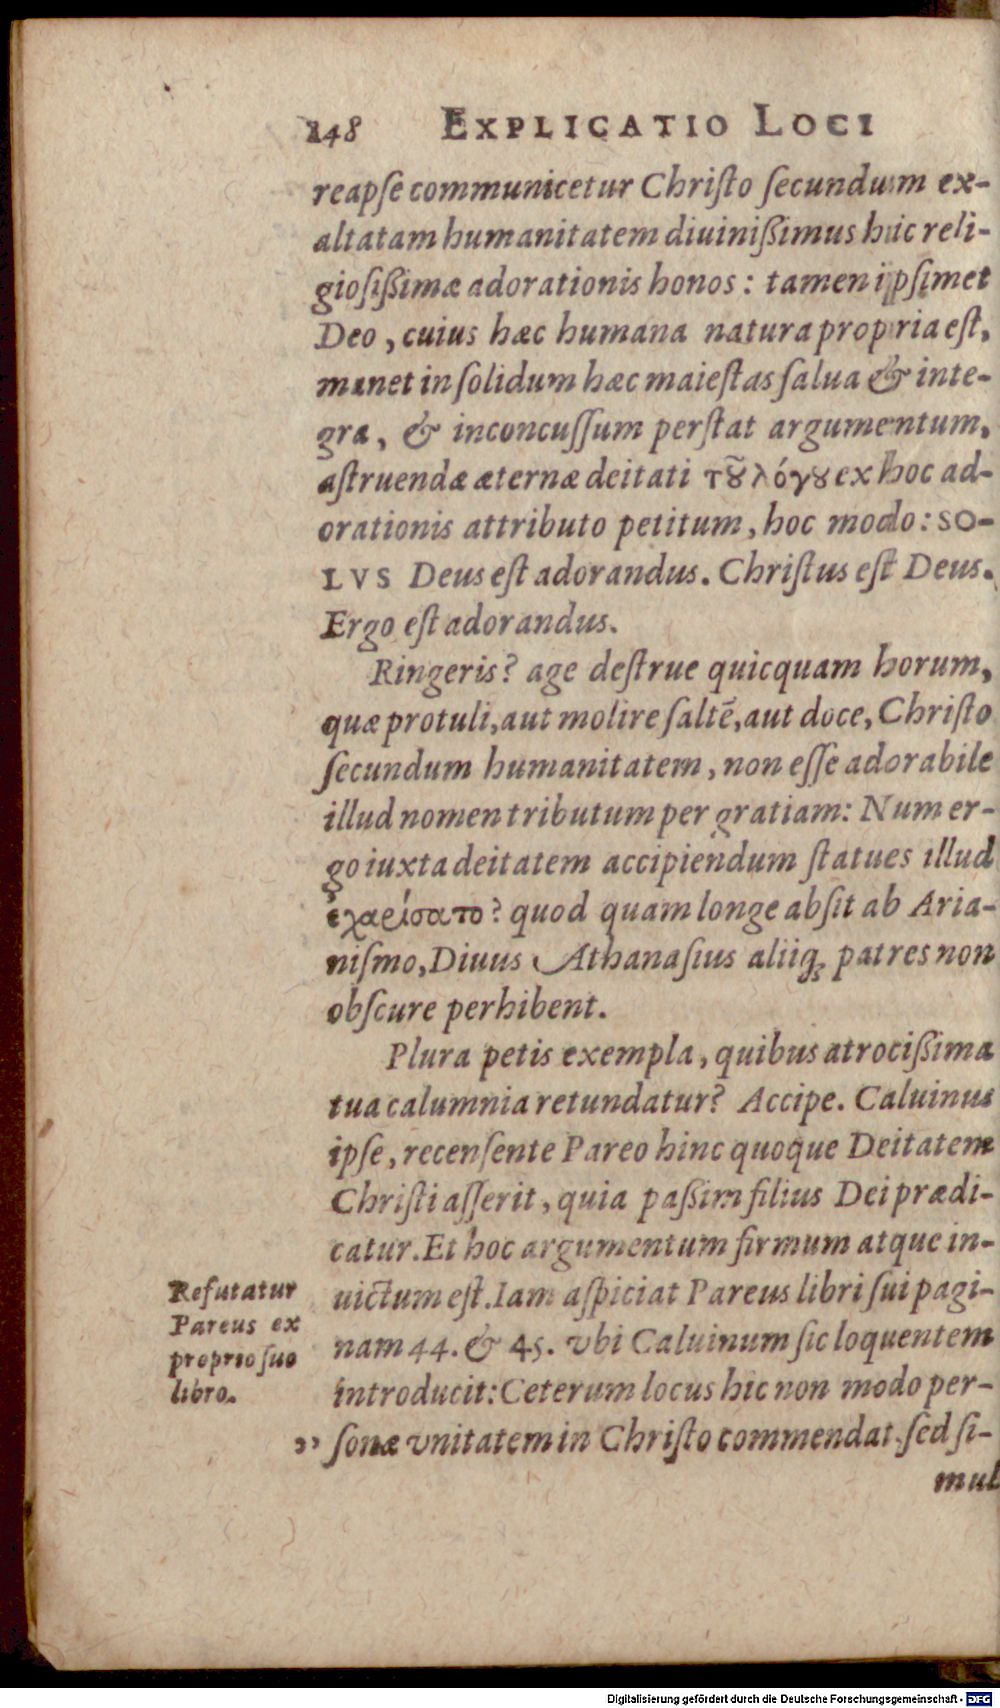 148 EXPLICATIO LOCI
reapſe communicetur Chriſto ſecundum ex-
altatam humanitatem diuinißimus hic reli-
gioſißimæ adorationis honos: tamen ipſimet
Deo, cuius hæc humana natura propria eſt,
manet in ſolidum hæc maieſtas ſalua & inte-
gra, & inconcuſſum perſtat argumentum,
aſtruendæ æternæ deitati τȣ͂ λόγȣ ex hoc ad-
orationis attributo petitum, hoc modo: SO-
LVS Deus eſt adorandus. Chriſtus eſt Deus.
Ergo eſt adorandus.
Ringeris? age deſtrue quicquam horum,
quæ protuli, aut molire ſaltē, aut doce, Chriſto
ſecundum humanitatem, non eſſe adorabile
illud nomen tributum per gratiam: Num er-
go iuxta deitatem accipiendum ſtatues illud
ἐχαρίσατο? quod quam longe abſit ab Aria-
niſmo, Diuus Athanaſius aliiq; patres non
obſcure perhibent.
Plura petis exempla, quibus atrocißima
tua calumnia retundatur? Accipe. Caluinus
ipſe, recenſente Pareo hinc quoque Deitatem
Chriſti aſſerit, quia paßim filius Dei prædi-
catur. Et hoc argumentum firmum atque in-
uictum eſt. Iam aſpiciat Pareus libri ſui pagi-
nam 44. & 45. vbi Caluinum ſic loquentem
introducit: Ceterum locus hic non modo per-
„ ſonæ vnitatem in Chriſto commendat. ſed ſi-
mul
Refutatur
Pareus ex
proprio ſuo
libro.
Digitalisierung gefördert durch die Deutsche Forschungsgemeinschaft - DFG